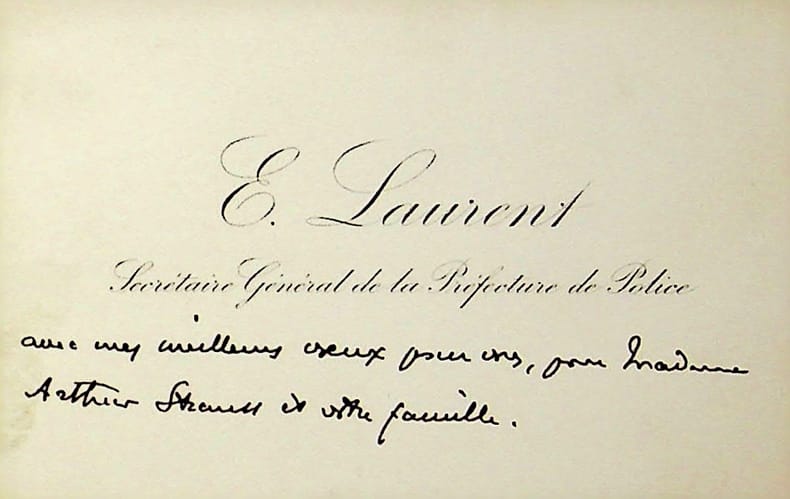 E. Laurent
Secrétaire Général de la Préfecture de Police
avec mes meilleurs vœux pour vous, pour Madame
Arthur Strauss et votre famille.